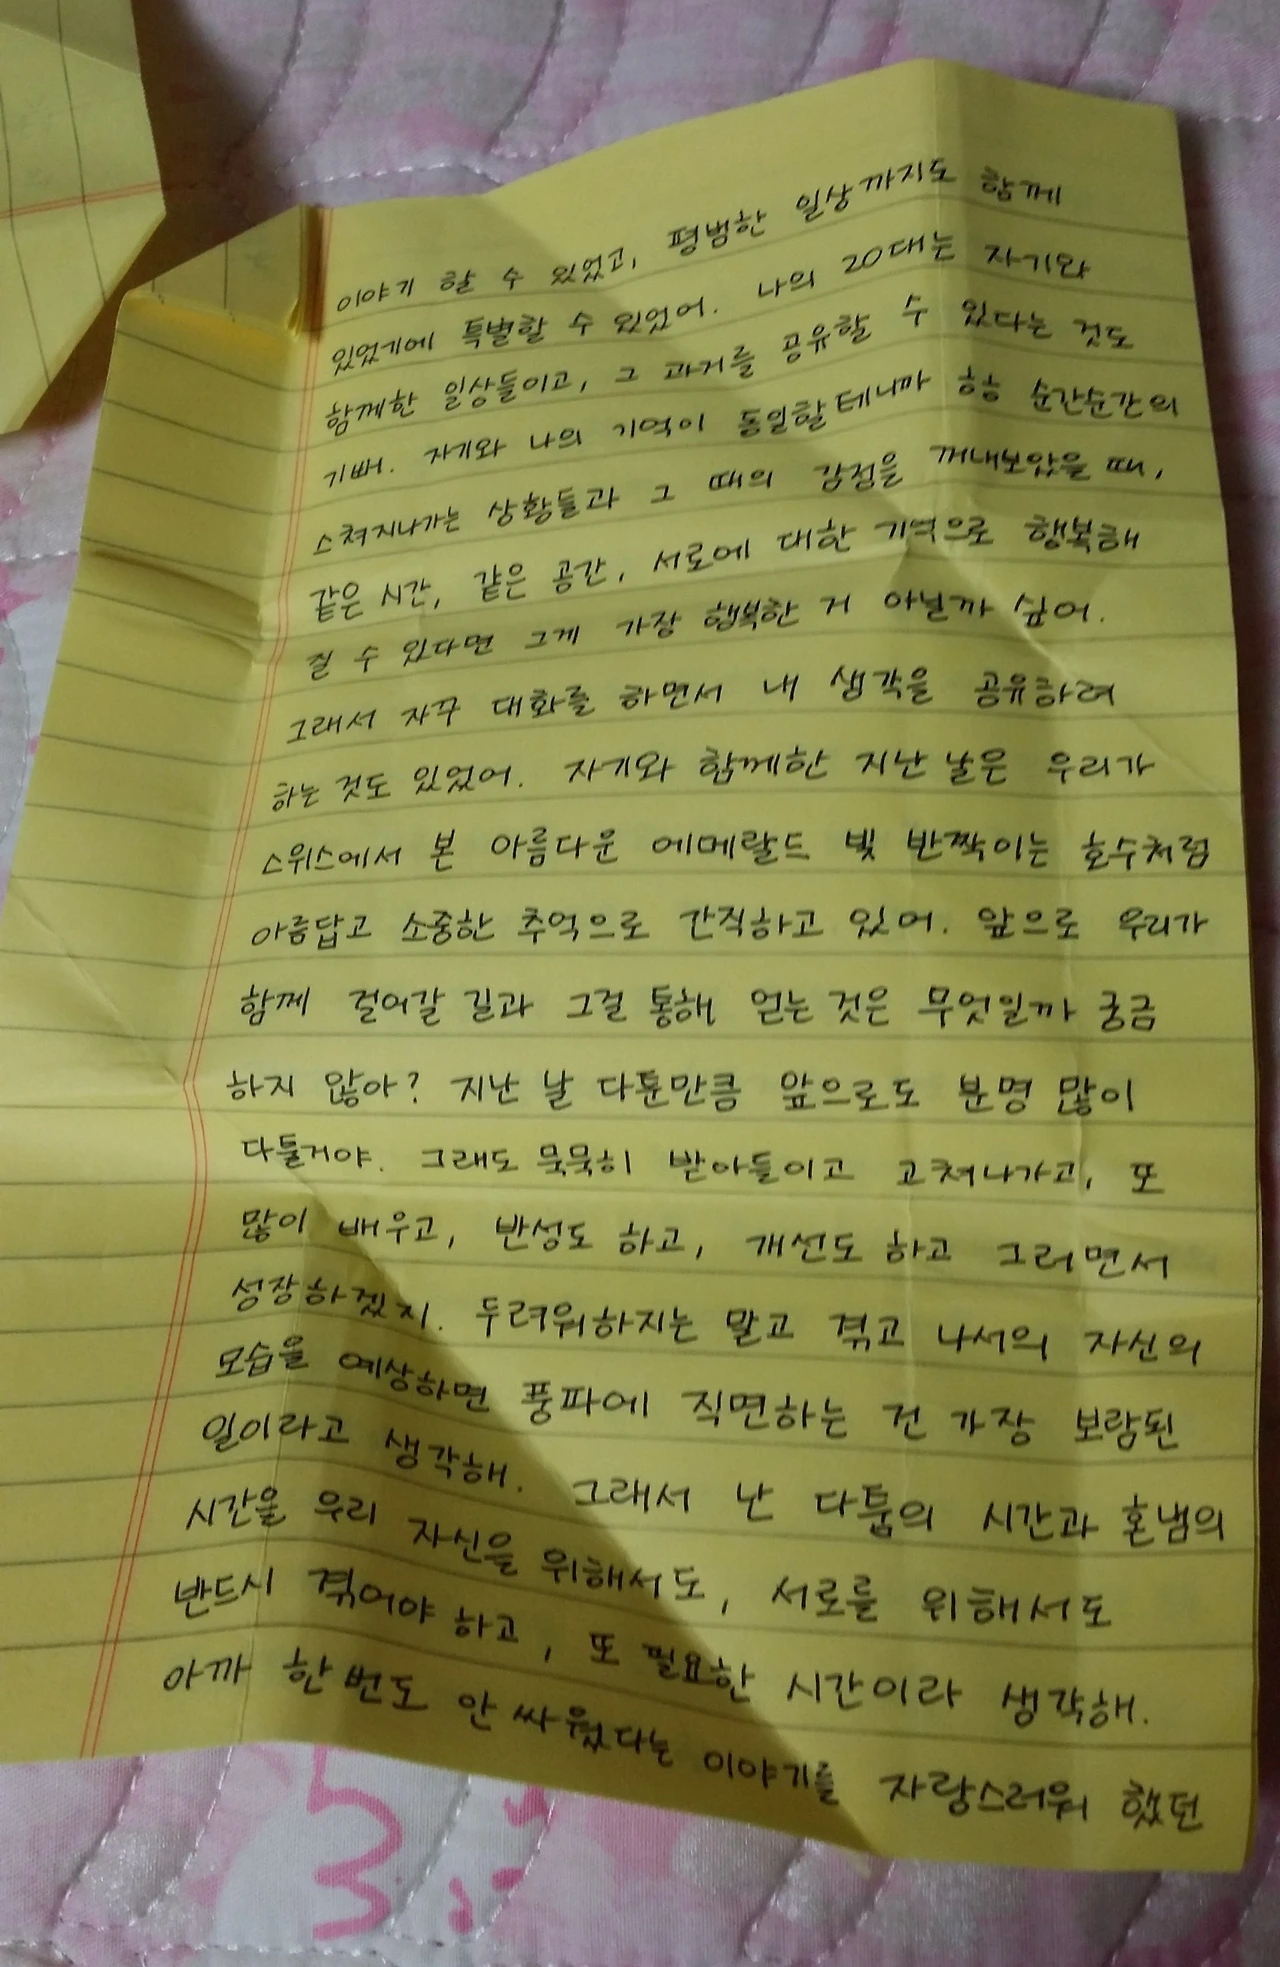 이야기 할 수 있었고, 평범한 일상까지도 함께
있었기에 특별할 수 있었어. 나의 20대는 자기와
함께한 일상들이고, 그 과거를 공유할 수 있다는 것도
기뻐. 자기와 나의 기억이 동일할테니까 항상 순간순간의
스쳐지나가는 상황들과 그 때의 감정을 꺼내보았을 때,
같은 시간, 같은 공간, 서로에 대한 기억으로 행복해
질 수 있다면 그게 가장 행복한 거 아닐까 싶어.
그래서 자꾸 대화를 하면서 내 생각을 공유하려
하는 것도 있었어. 자기와 함께한 지난 날은 우리가
스위스에서 본 아름다운 에메랄드 빛 반짝이는 호수처럼
아름답고 소중한 추억으로 간직하고 있어. 앞으로 우리가
함께 걸어갈 길과 그걸 통해 얻는 것은 무엇일까 궁금
하지 않아? 지난 날 다툰만큼 앞으로도 분명 많이
다툴거야. 그래도 묵묵히 받아들이고 고쳐나가고, 또
많이 배우고, 반성도 하고, 개선도 하고 그러면서
성장하겠지. 두려워하지는 말고 겪고 나서의 자신의
모습을 예상하면 풍파에 직면하는 건 가장 보람된
일이라고 생각해. 그래서 난 다툼의 시간과 혼냄의
시간을 우리 자신을 위해서도, 서로를 위해서도
반드시 겪어야 하고, 또 필요한 시간이라 생각해.
아까 한번도 안 싸웠다는 이야기를 자랑스러워 했던